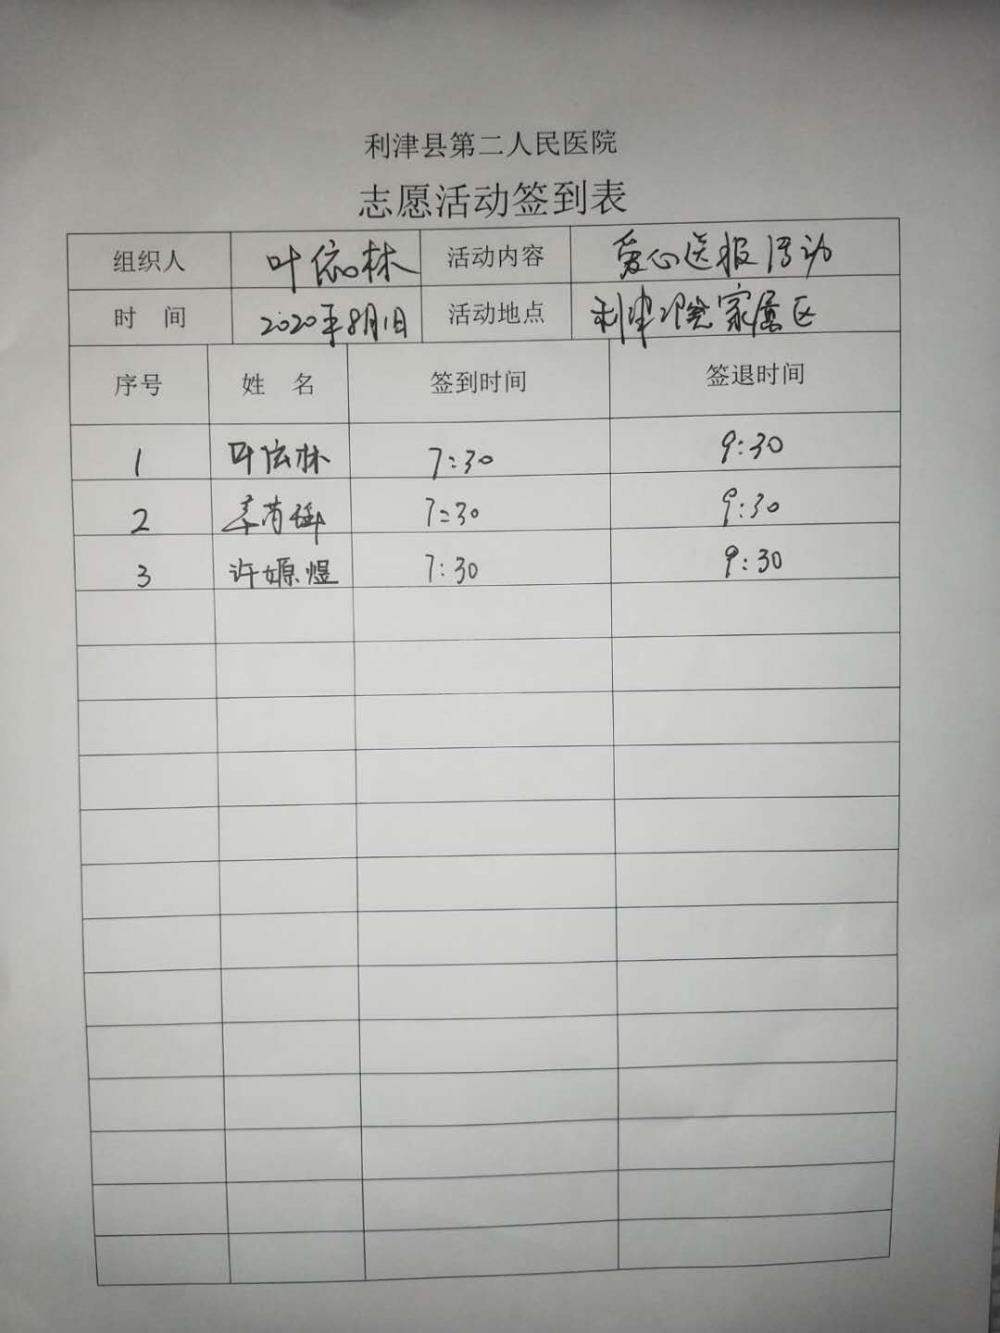 利津县第二人民医院
志愿活动签到表
组织人 叶依林 活动内容 爱心送报活动
时 间 2020年8月1日 活动地点 利津 家属区
序号 姓 名 签到时间 签退时间
1 叶依林 7:30 9:30
2 7:30 9:30
3 许嫄煜 7:30 9:30